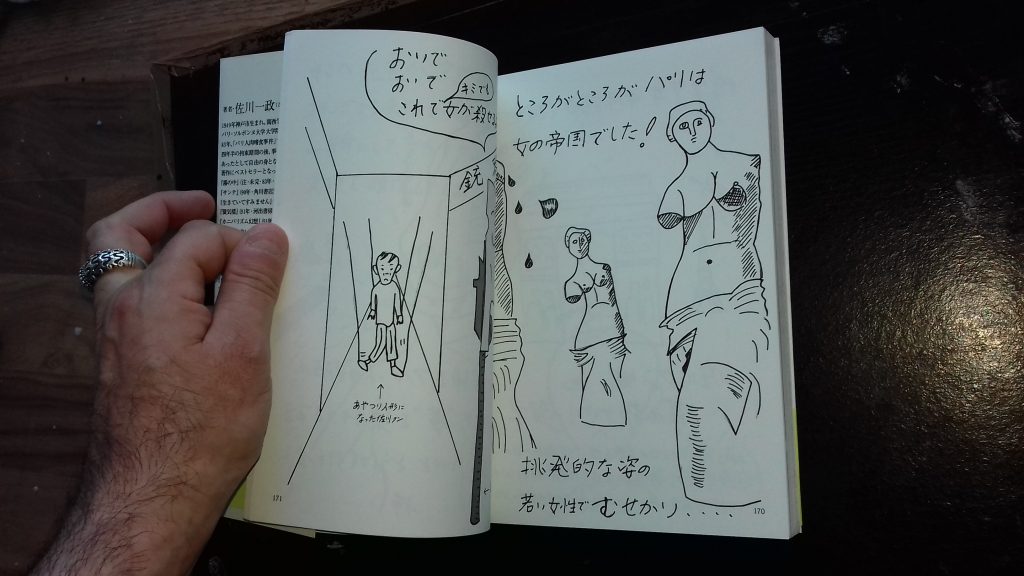 ところがところがパリは
女の帝国でした!
挑発的な姿の
若い女性でむせかり・・・・
170
おいで
おいで
キミでも
これで女が殺せる
銃
あやつり人形に
なった佐川クン
171
著者・佐川一政
1949年神戸市生まれ。関西学
パリ・ソルボンヌ大学大学院
「パリ人肉嗜食事件」
の拘束期間の後、事
あったとして自由の身とな
著作にベストセラーとなっ
『霧の中』(注・未完・83年・
『サンテ』(90年・角川書店
『生きていてすみません』
『蜃気楼』(91年・河出書房
『カニバリズム幻想』